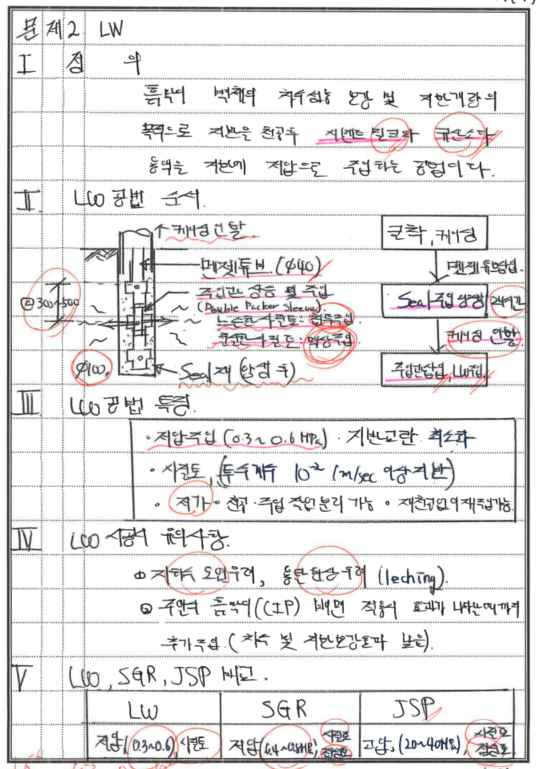 문제2 LW
I 정의
흙막이 벽체의 차수성능 보강 및 지반개량의
목적으로 지반을 천공후 시멘트 밀크와 규산소다
용액을 지반에 저압으로 주입하는 공법이다.
II. LW 공법 순서.
케이싱 인발
멘젯튜브 (ø40)
주입관 상승 및 주입
(Double Packer Sleeve)
@300~500
ø100.
Seal재 (완성 후)
천착, 케이싱
멘젯튜브삽입.
Seal 주입 양생 24시간
케이싱 인발
주입관삽입, LW주입.
III LW 공법 특징.
· 저압주입 (0.3~0.6 MPa) · 지반교란 최소화
· 사질토, (투수계수 10⁻² cm/sec 이상 지반)
· 저가 · 천공·주입 작업 분리 가능 · 재천공없이 재주입가능.
IV LW 시공시 유의사항.
① 지하수 오염우려, 용탈현상우려 (leching).
② 주변의 흙막이(CIP) 배면 적용시 효과가 나타날때까지
추가주입. (차수 및 지반보강효과 낮음).
V LW, SGR, JSP 비교.
LW SGR JSP
저압, (0.3~0.6) 사질토
저압 사질토 점성토
고압, (20~40MPa) 사질토 점성토